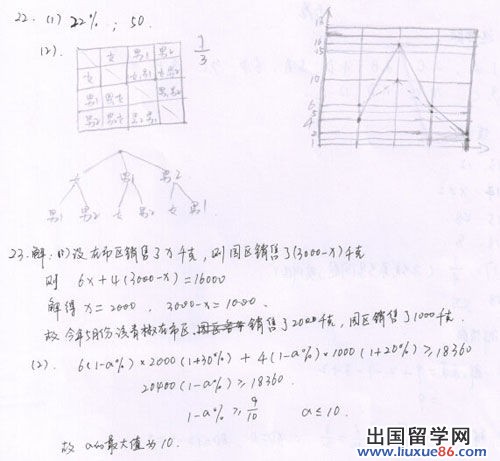 22. (1) 22% ; 50.
(2).
女 男1 男2
女 女男1 女男2
男1 男1女 男1男2
男2 男2女 男2男1
1/3
女 男1 男2
男1 男2 女 男2 女 男1
16
15
10
6
5
4
2
1
23. 解: (1) 设在市区销售了x千克, 则园区销售了(3000-x)千克
则 6x+4(3000-x)=16000
解得 x=2000 . 3000-x=1000 .
故今年5月份该青椒在市区销售了2000千克, 园区销售了1000千克.
(2). 6(1-a%)×2000(1+30%) + 4(1-a%)×1000(1+20%) ≥ 18360
20400(1-a%) ≥ 18360.
1-a% ≥ 9/10 a≤10.
故 a的最大值为10.
出国留学网
www.liuxue86.com